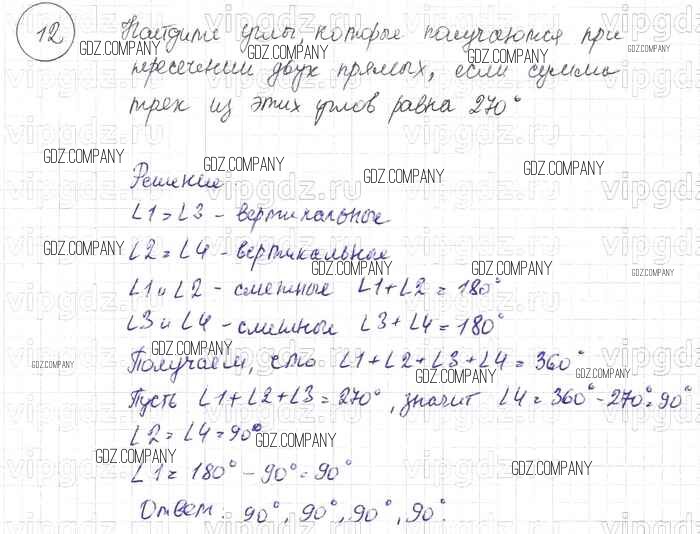 12 Найдите углы, которые получаются при
пересечении двух прямых, если сумма
трех из этих углов равна 270°
Решение
∠1=∠3 - вертикальные
∠2=∠4 - вертикальные
∠1 и ∠2 - смежные ∠1+∠2=180°
∠3 и ∠4 - смежные ∠3+∠4=180°
Получаем, что ∠1+∠2+∠3+∠4=360°
Пусть ∠1+∠2+∠3=270°, значит ∠4=360°-270°=90°
∠2=∠4=90°
∠1=180°-90°=90°
Ответ: 90°, 90°, 90°, 90°.
GDZ.COMPANY
vipgdz.ru